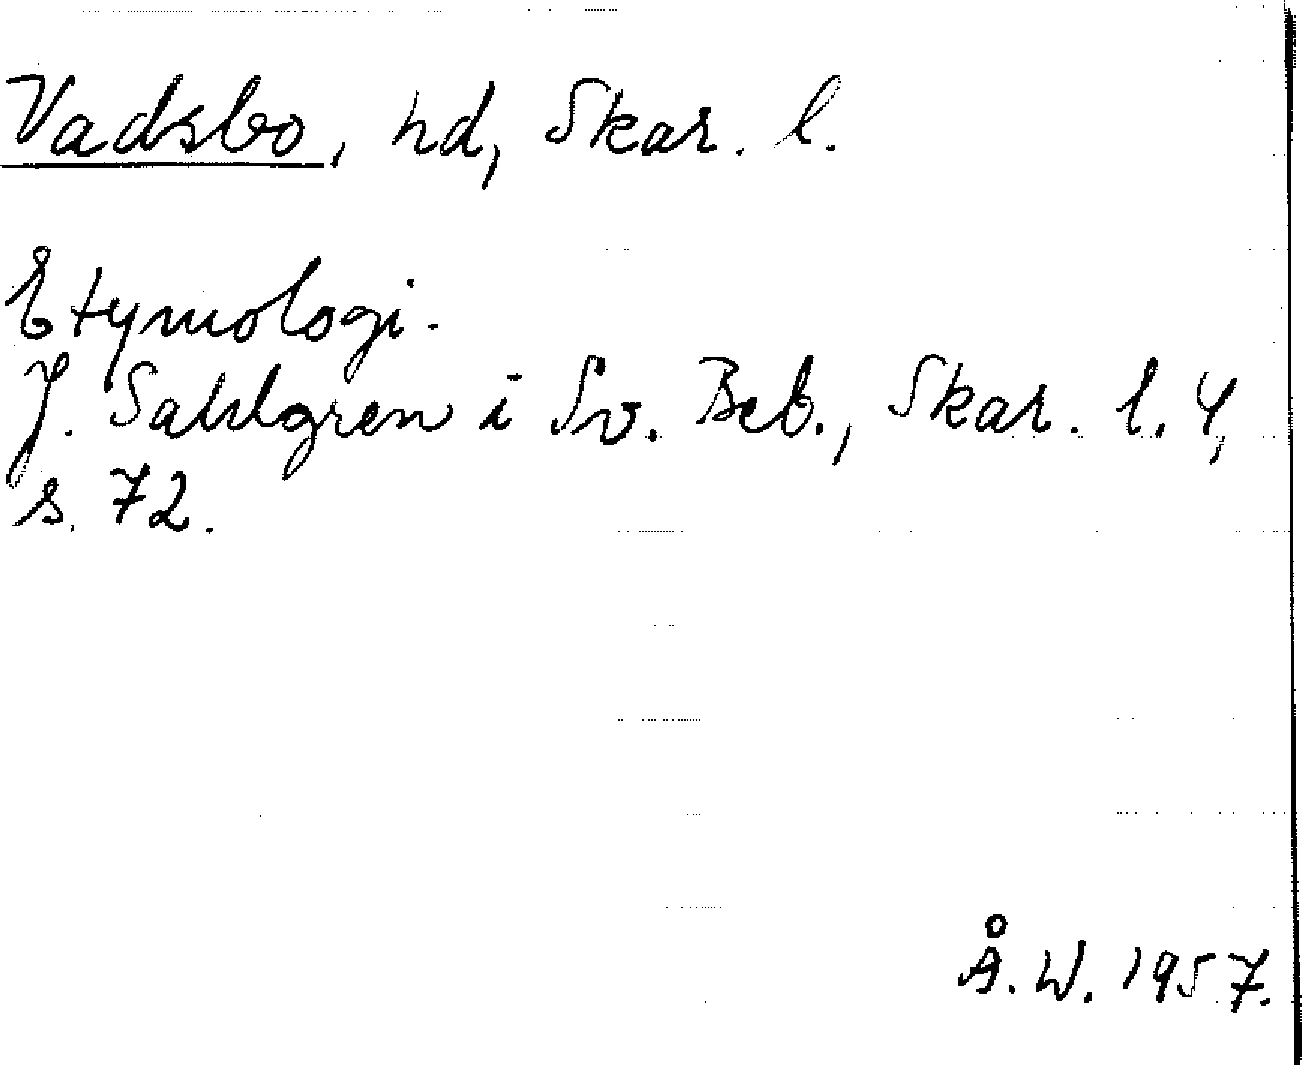 Vadsbo, hd, Skar. l.
Etymologi.
J. Sahlgren i Sv. Beb., Skar. l. 4,
s. 72.
Å. W. 1957.